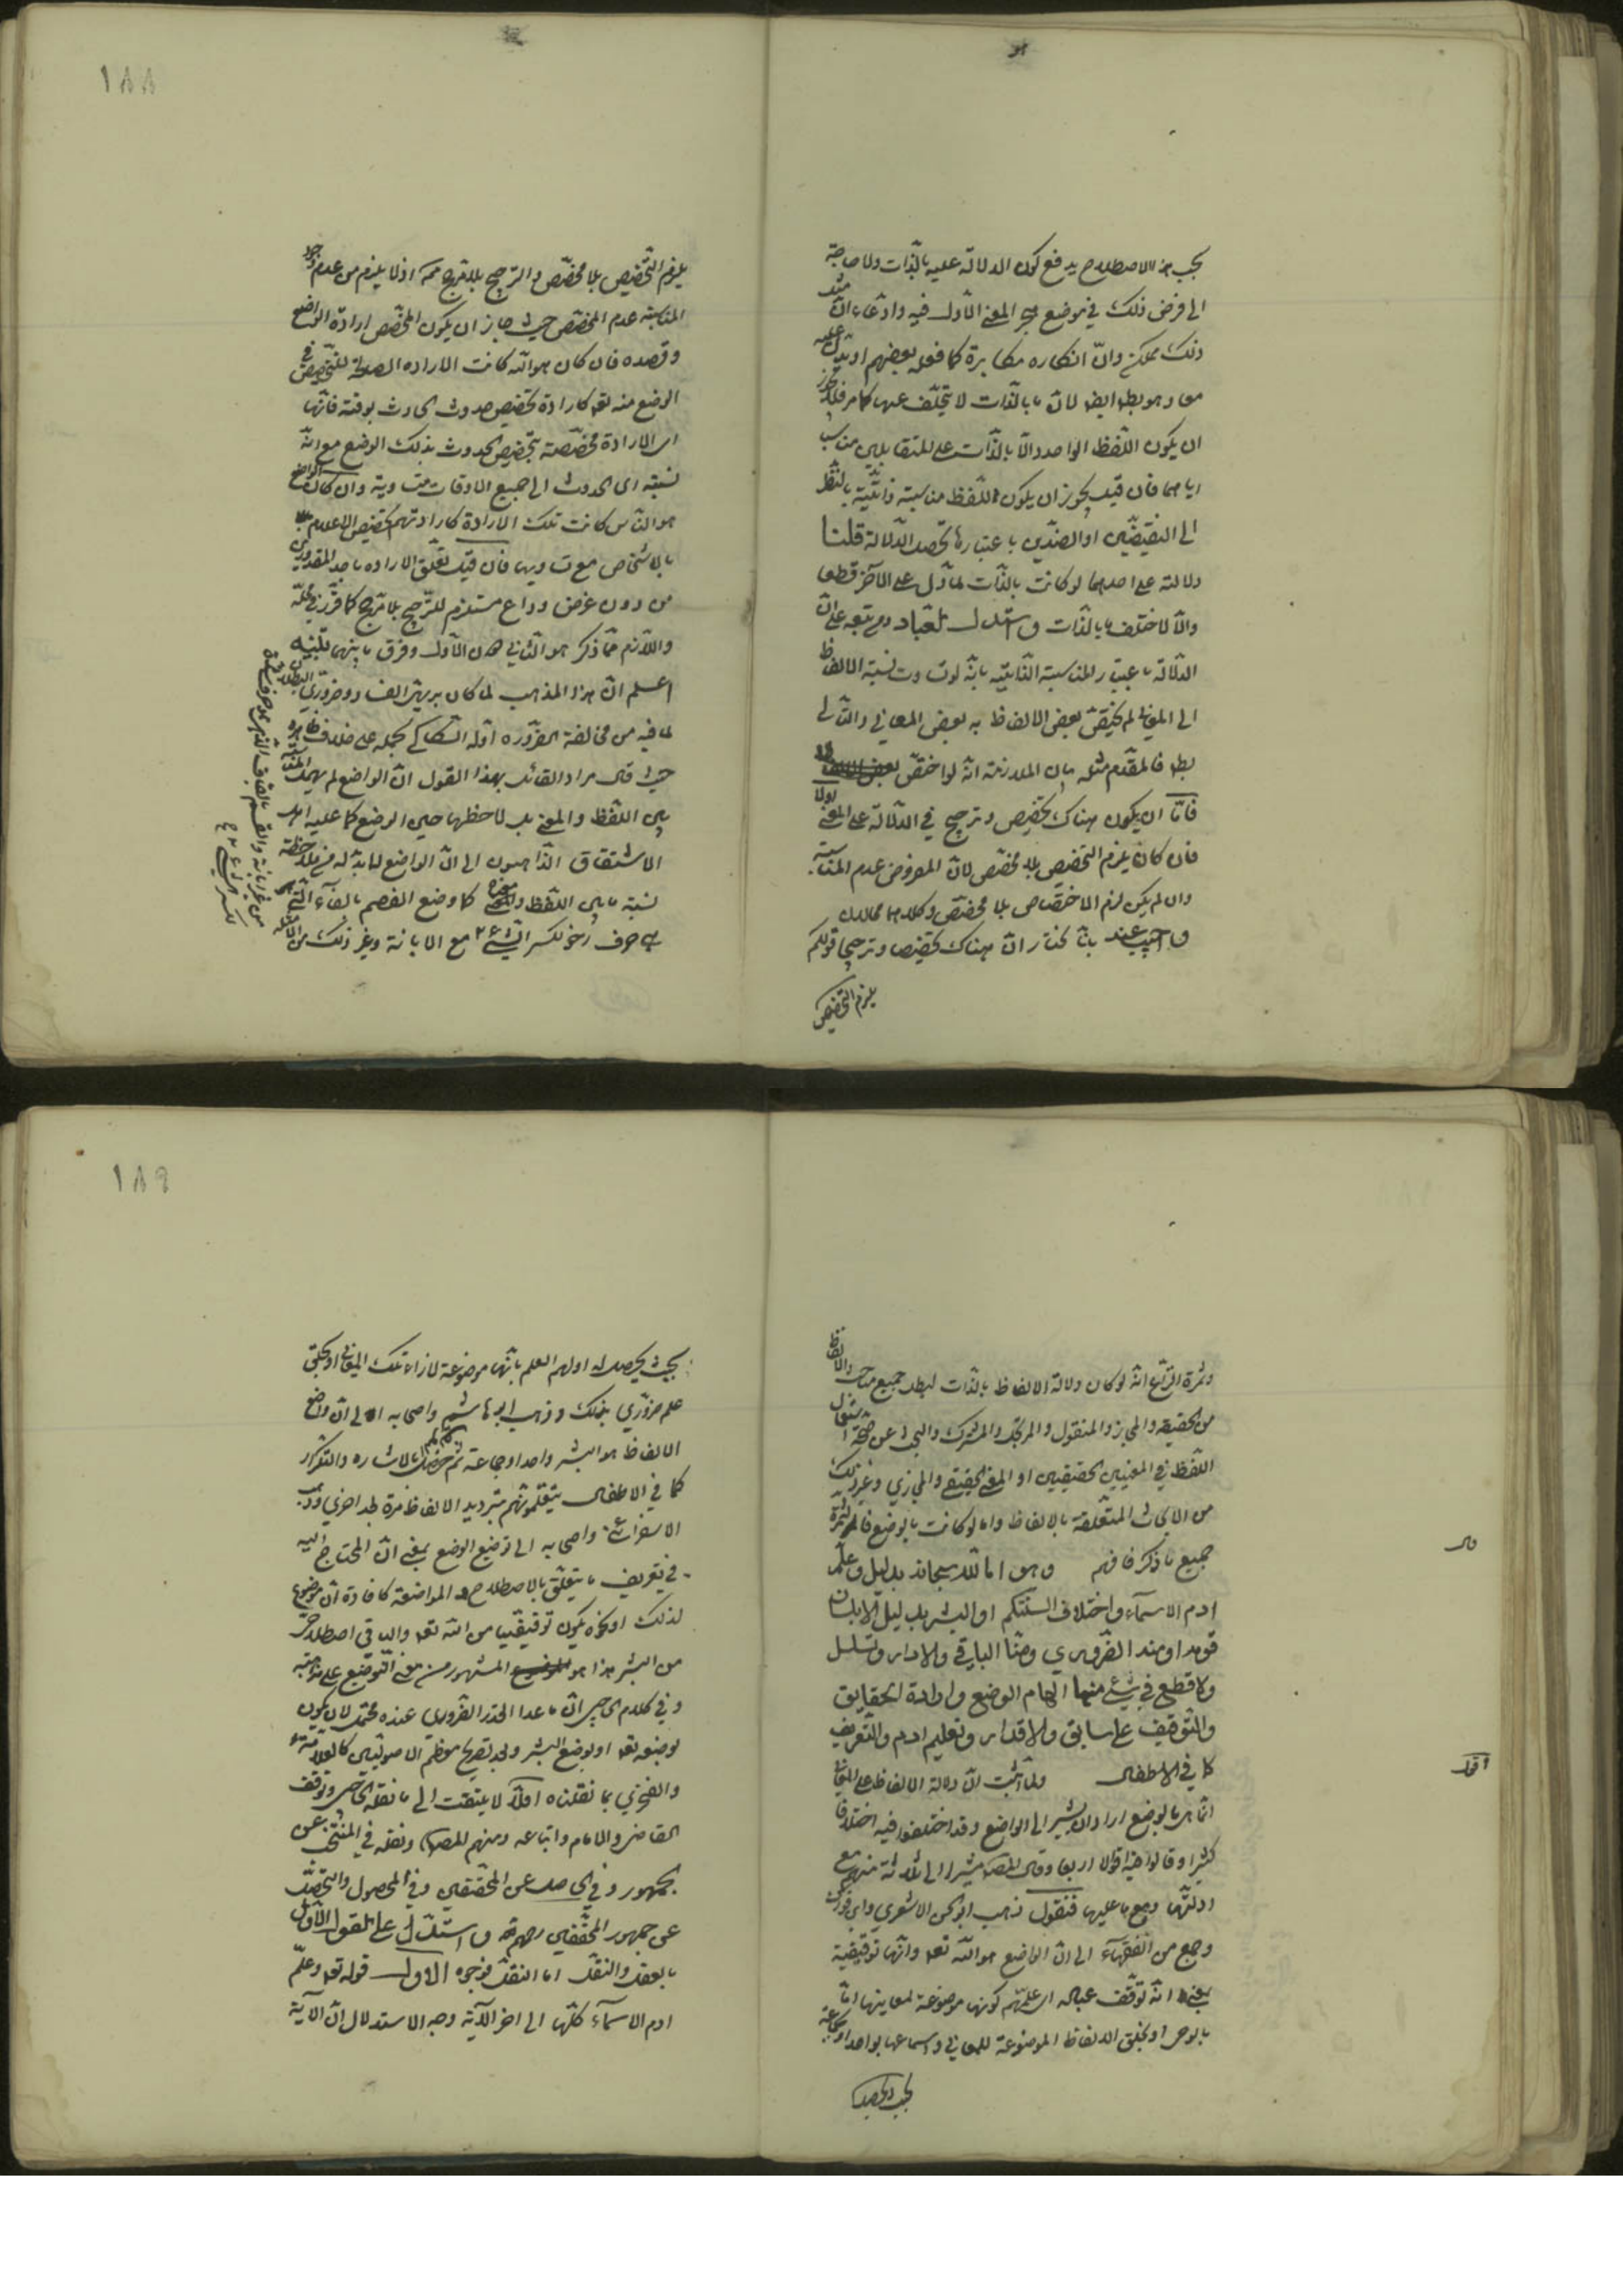 بحسب الاصطلاح يدفع كون الدلالة عليه بالذات ولا حاجة
الى فرض ذلك في موضع المعنى الاول فيه وادعاء ان
ذلك ممكن وان انكاره مكابرة كما فعله بعضهم او يدل عليه
معا وهو بط ايضا لان ما بالذات لا يتخلف عنها كما مر فلا يجوز
ان يكون اللفظ الواحد دالا بالذات على المتقابلين مناسبا
اياهما فان قيل يجوز ان يكون اللفظ مناسبة ذاتية بالنظر
الى النقيضين او الضدين باعتبارها تحصل الدلالة قلنا
دلالته على احدهما لو كانت بالذات لما دل على الآخر قطعا
والا لاختلف ما بالذات واستدل لعباد ومن تبعه على ان
الدلالة باعتبار المناسبة الذاتية بانه لو تساوت نسبة الالفاظ
الى المعاني لم يختص بعض الالفاظ به بعض المعاني والتالي
بط فالمقدم مثله بيان الملازمة انه لو اختص
فاما ان يكون هناك تخصيص وترجيح في الدلالة على المعنى اولا
فان كان يلزم التخصيص بلا مخصص لان المفروض عدم المناسبة
وان لم يكن لزم الاختصاص بلا مخصص وكلاهما محالان
واجيب عنه بانا نختار ان هناك تخصيصا وترجيحا قولكم
يلزم التخصيص
١٨٨
يلزم التخصيص بلا مخصص والترجيح بلا مرجح ممنوع اذ لا يلزم من عدم وجود
المناسبة عدم المخصص حيث جاز ان يكون المخصص ارادة الواضع
وقصده فان كان هو الله كانت الارادة الصالحة للتخصيص في
الوضع منه تعالى كارادة تخصيص حدوث الحادث بوقته فانها
اى الارادة مخصصة بتخصيص الحدوث بذلك الوضع مع ان
نسبة اى الحدوث الى جميع الاوقات متساوية وان كان الواضع
هو الناس كانت تلك الارادة كارادتهم تخصيص الاعلام
بالاشخاص مع تساويها فان قيل تعلق الارادة باحد المقدورين
من دون غرض وداع مستلزم للترجيح بلا مرجح كما قرر في محله
واللازم مما ذكر هو الثاني دون الاول وفرق ما بينهما تنبيه
اعلم ان هذا المذهب لما كان بديهي الفساد وضروري البطلان
لما فيه من مخالفة الضرورة اوله السكاكي بحمله على خلاف ظاهره
حيث قال مراد القائل بهذا القول ان الواضع لم يهمل المناسبة
بين اللفظ والمعنى بل لاحظها حين الوضع كما عليه اهل
الاشتقاق الذاهبون الى ان الواضع لا بد له من ملاحظة
نسبة ما بين اللفظ ومعناه كما وضع الفصم بالفاء التي
هي حرف رخو لكسر الشيء مع الابانة وغير ذلك من الامثلة
من غير ابانة والقصم بالقاف الذي هو حرف شديد
لكسر الشيء
وثمرة النزاع انه لو كان دلالة الالفاظ بالذات لبطل جميع مباحث الالفاظ
من الحقيقة والمجاز والمنقول والمرتجل والمشترك والبحث عن صحة استعمال
اللفظ في المعنيين الحقيقيين او المعنى الحقيقي والمجازي وغير ذلك
من الابحاث المتعلقة بالالفاظ واما لو كانت بالوضع فالثمرة
جميع ما ذكر فافهم وهو اما الله سبحانه بدليل وعلم
قال
ادم الاسماء واختلاف السنتكم او البشر بدليل الا بلسان
قومه او منه الضروري ومنا الباقي والا دار وتسلسل
ولا قطع في شيء منها الهام الوضع وارادة الحقايق
والتوقيف على سابق والاقدار وتعليم ادم والتعريف
كما في الاطفال ولما اثبت ان دلالة الالفاظ على المعاني
اقول
انما هي بالوضع اراد ان يشير الى الواضع وقد اختلفوا فيه اختلافا
كثيرا وقالوا فيه اقوالا اربعا وقال المصنف مشيرا الى ثلاثة منها مع
ادلتها ومع ما عليها فنقول ذهب ابو الحسن الاشعري وابن فورك
وجمع من الفقهاء الى ان الواضع هو الله تعالى وانها توقيفية
بمعنى انه توقف عباده اى علمهم كونها موضوعة لمعانيها اما
بالوحي او بخلق الالفاظ الموضوعة للمعاني واسماعها بواحد او جماعة
بحيث يحصل
١٨٩
بحيث يحصل له او لهم العلم بانها موضوعة لازاء تلك المعاني او بخلق
علم ضروري بذلك وذهب ابو هاشم واصحابه الى ان واضع
الالفاظ هو البشر واحد او جماعة ثم حصل بالاشارة والتكرار
كما في الاطفال يتعلمونهم بترديد الالفاظ مرة بعد اخرى وذهب
الاسفرايني واصحابه الى توزيع الوضع بمعنى ان المحتاج اليه
في تعريف ما يتعلق بالاصطلاح والمواضعة كافادة ان موضوع
لذلك او نحوه يكون توقيفيا من الله تعالى والباقي اصطلاحي
من البشر هذا هو المشهور من معنى التوزيع على مذهبه
وفي كلام الحاجبي ان ما عدا القدر الضروري عنده محتمل لان يكون
بوضعه تعالى او بوضع البشر وبعد تصريح معظم الاصوليين كالعلامة
والفخري بما نقلناه اولا لا يلتفت الى ما نقله الحاجبي وتوقف
القاضي والامام واتباعه ومنهم المصنف ونقله في المنتخب عن
الجمهور وفي الحاصل عن المحققين وفي المحصول والتحصيل
عن جمهور المحققين رحمهم الله واستدل على القول الاول
بالعقل والنقل اما النقل فوجوه الاول قوله تعالى وعلم
ادم الاسماء كلها الى اخر الآية وجه الاستدلال ان الآية